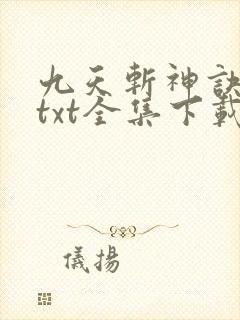 九天斬神訣
txt全集下載
儀揚